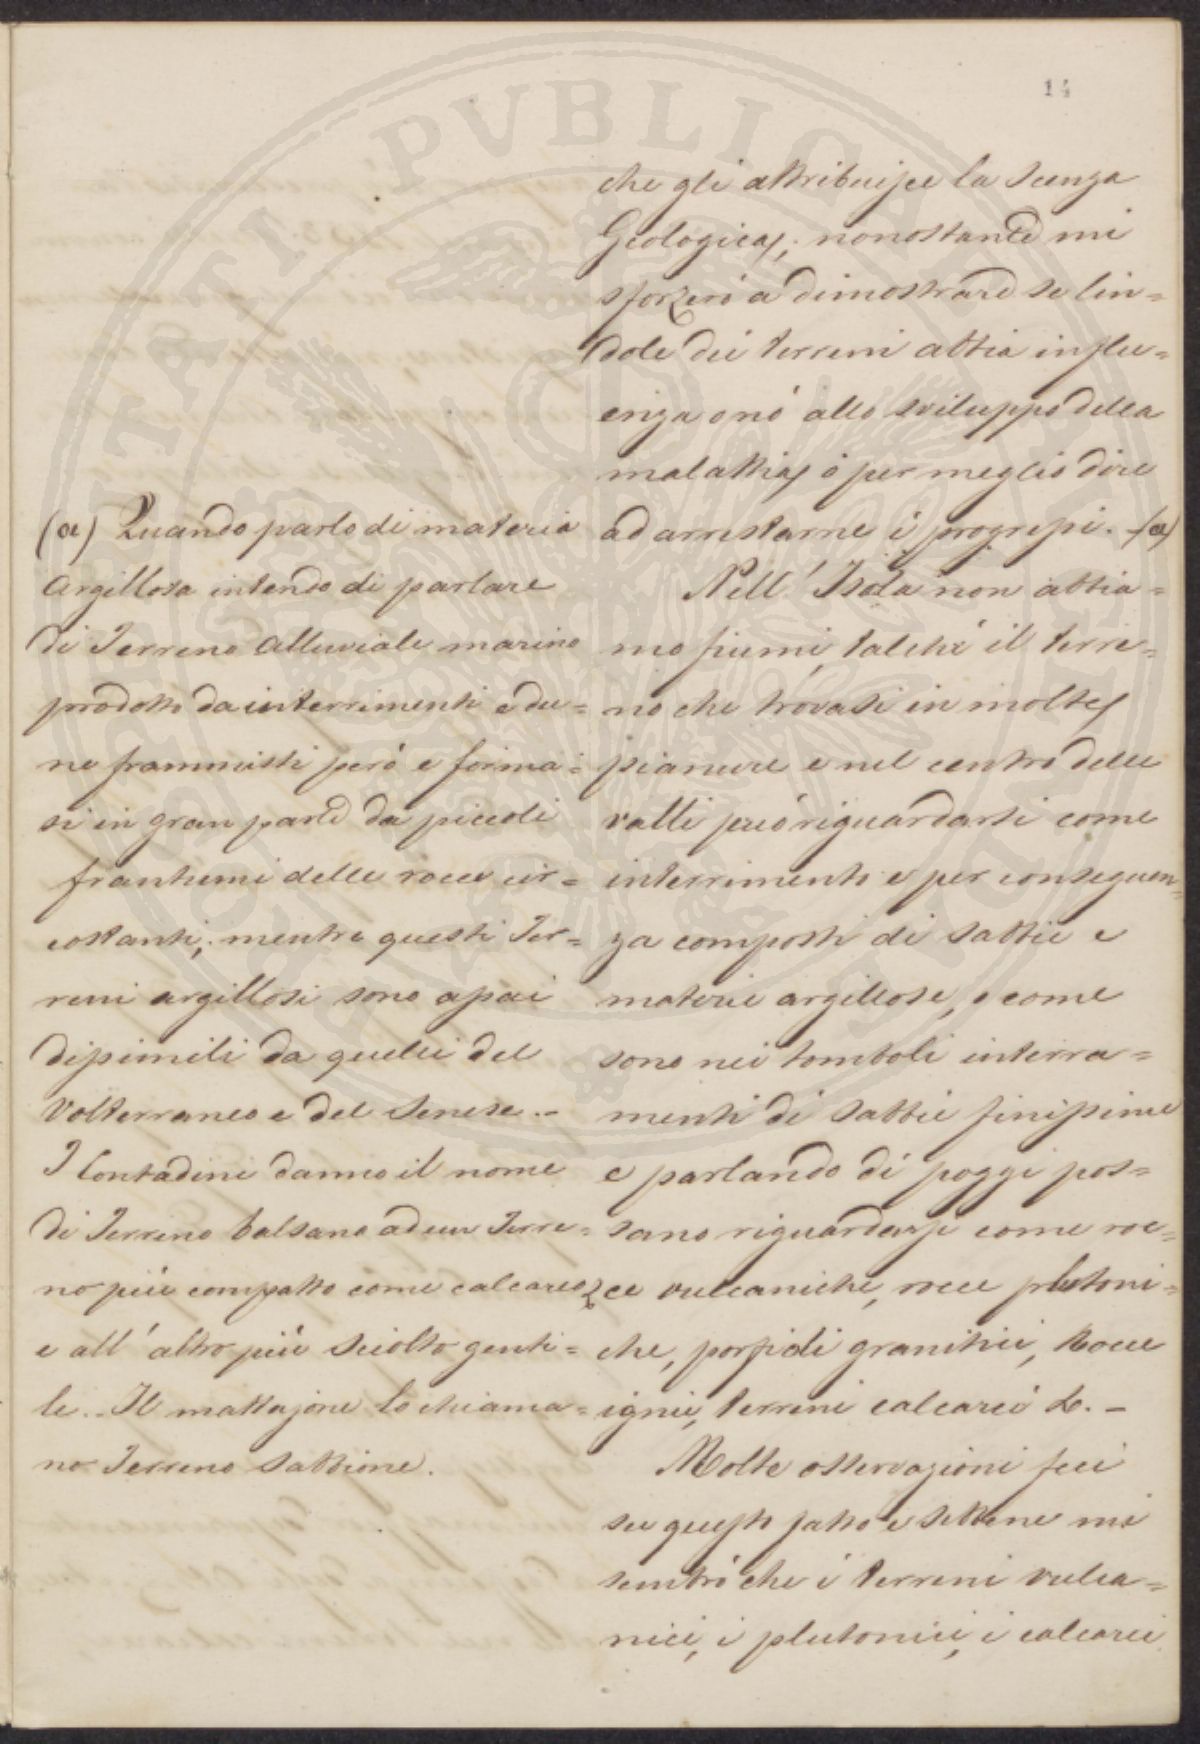 14
che gli attribuisce la Scenza
Geologica; nonostante mi
sforzerò a dimostrare se lin=
dole dei terreni abbia influ=
enza o nò allo sviluppo della
malattia, o per meglio dire
ad arrestarne i progressi. (a)
Nell' Isola non abbia=
mo fiumi, talchè il terre=
no che trovasi in molte
pianure e nel centro delle
valli può riguardarsi come
interrimento e per conseguen=
za composti di sabbie e
materie argillose, e come
sono nei tomboli interra=
menti di sabbie finissime
e parlando di poggi pos=
sano riguardarsi come roc=
ce vulcaniche, rocce plutoni=
che, porfidi granitici, Rocce
ignie, terreni calcarei &. –
Molte osservazioni feci
su questo fatto e sebbene mi
sembrò che i terreni vulca=
nici, i plutonici, i calcarei
(a) Quando parlo di materia
Argillosa intendo di parlare
di Terreno Alluviale marino
prodotto da interrimenti e du=
ne frammisti però e forma=
si in gran parte da piccoli
frantumi delle rocce cir=
costanti; mentre questi Ter=
reni argillosi sono assai
dissimili da quelli del
Volterraneo e del Senese. –
I Contadini danno il nome
di Terreno balsano ad un Terre=
no più compatto come calcareo
e all' altro più sciolto genti=
le. – Il mattajone lo chiama=
no Terreno Sabbione.
PROPRIETATI PUBLICAE